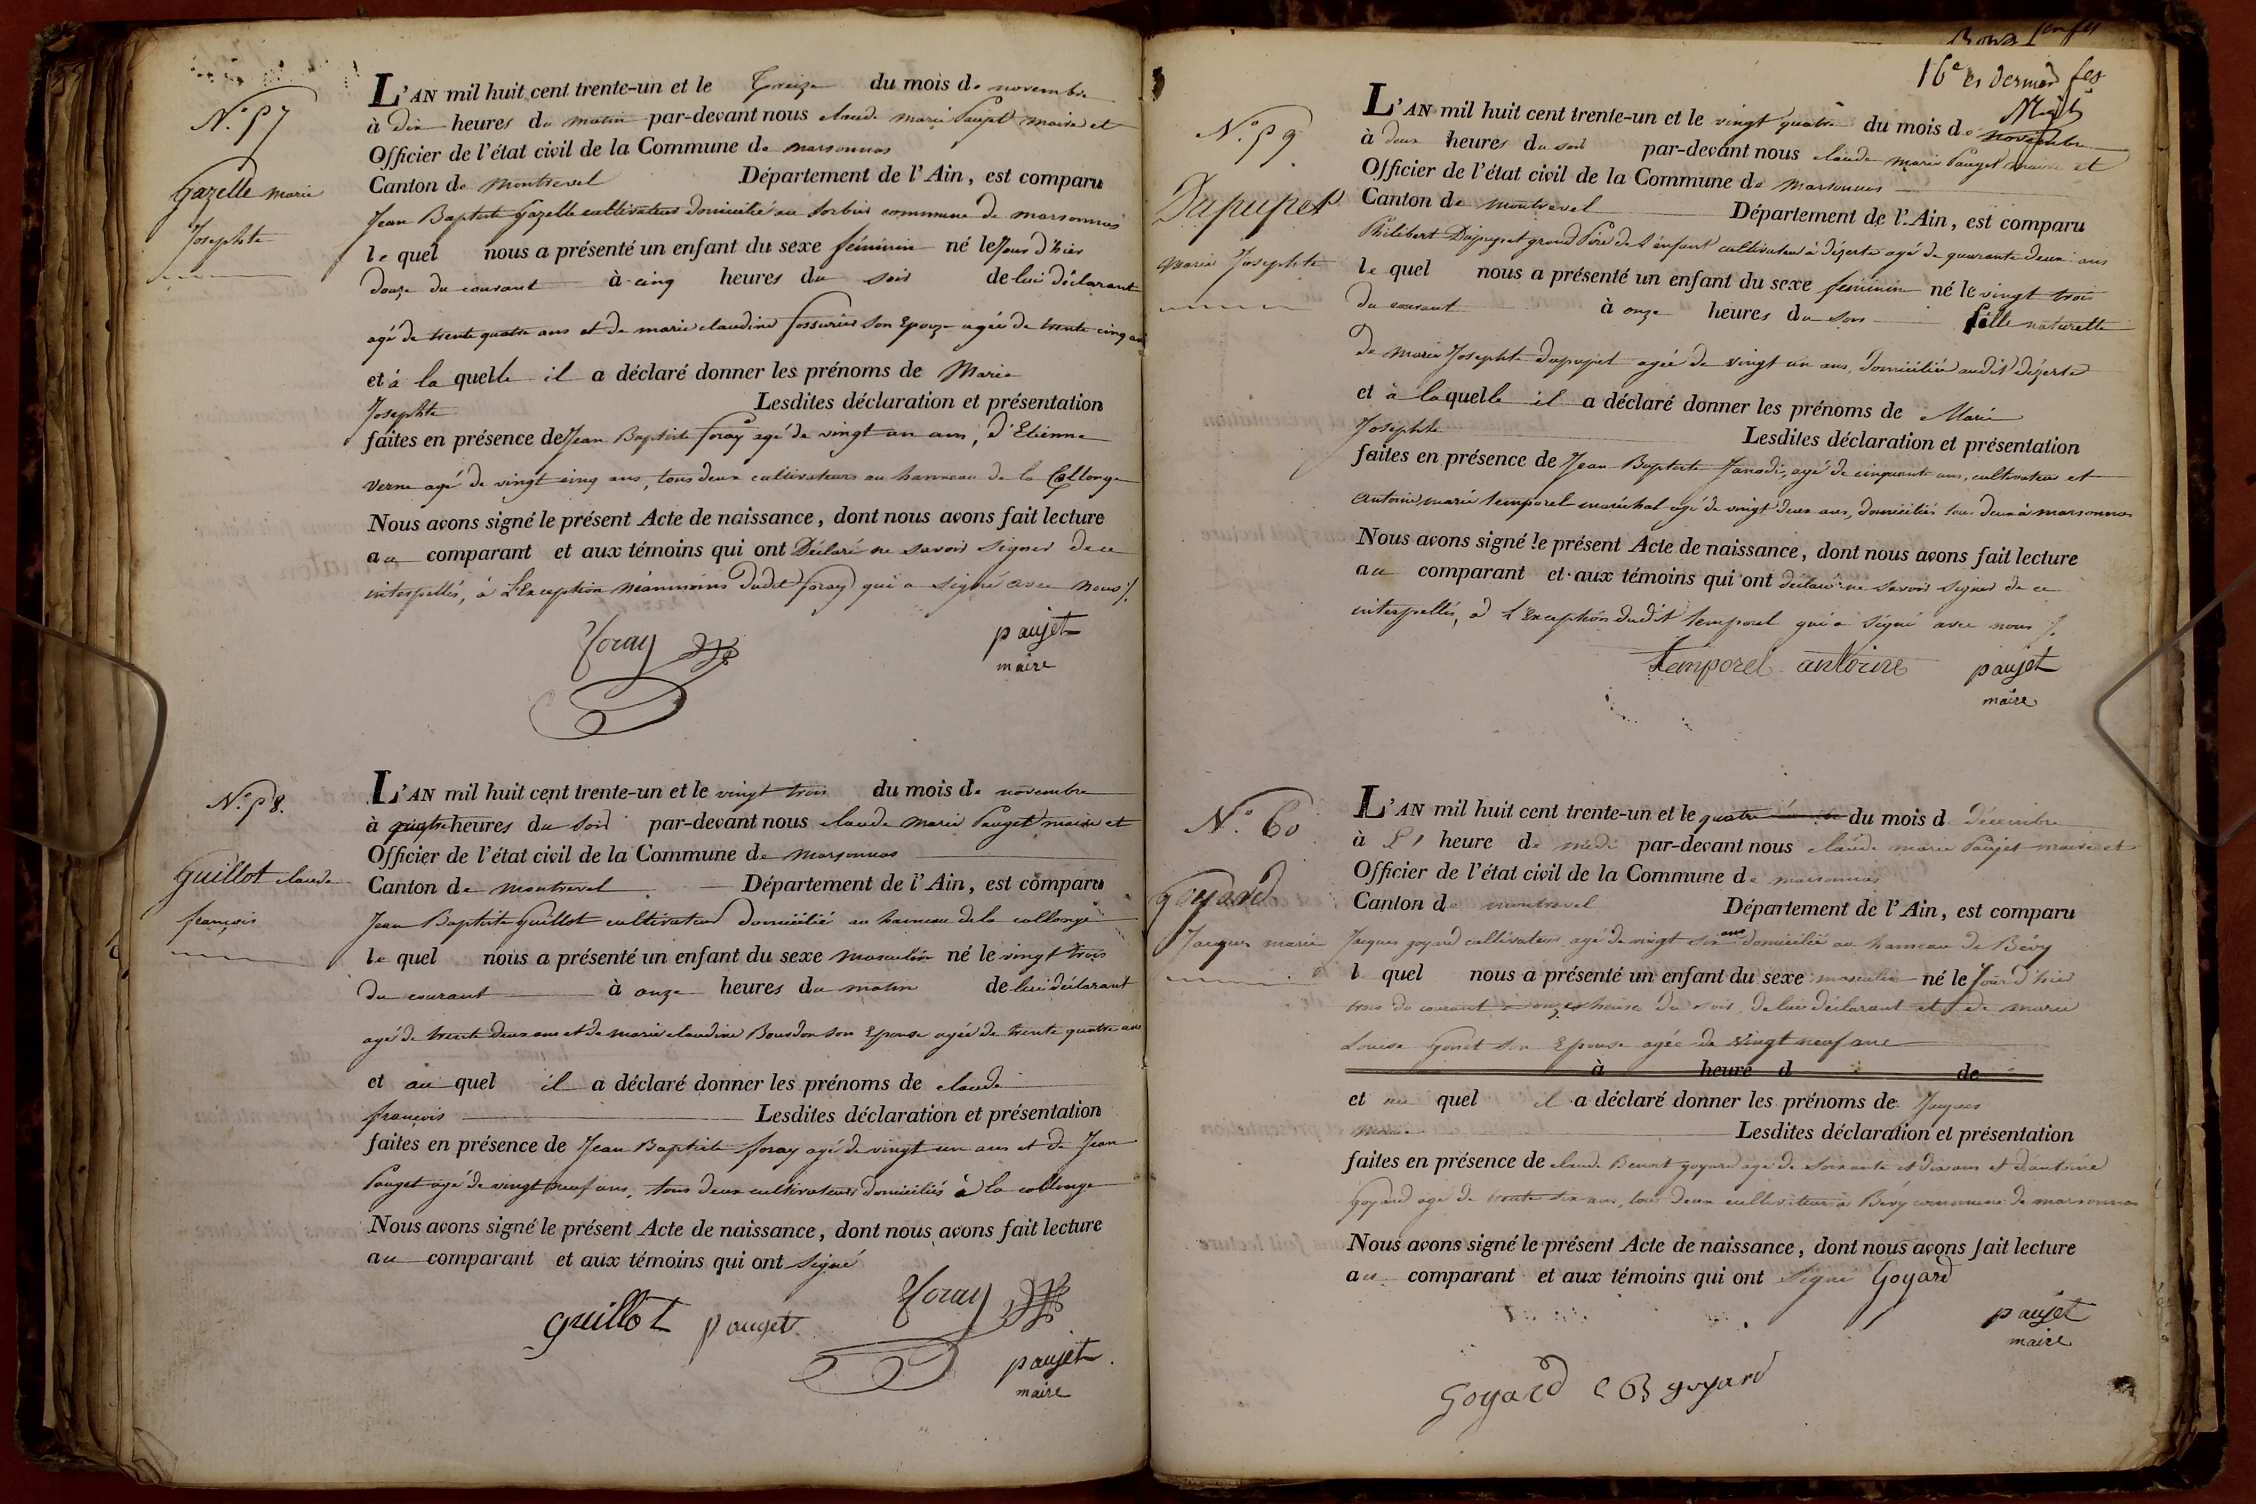 N.° 57
Gazelle marie
Josephte
L'AN mil huit cent trente-un et le Treize du mois de novembre
à dix heures du matin par-devant nous claude marie Paujet maire et
Officier de l'état civil de la Commune de marsonnas
Canton de montrevel Département de l'Ain, est comparu
Jean Baptiste Gazelle cultivateur domicilié au Sorbier commune de marsonnas
le quel nous a présenté un enfant du sexe féminin né le Jour d'hier
douze du courant à cinq heures du soir de lui déclarant
agé de trente quatre ans et de marie claudine son Epouze agée de trente cinq ans
et à la quelle il a déclaré donner les prénoms de Marie
Josephte Lesdites déclaration et présentation
faites en présence de Jean Baptiste foray agé de vingt un ans, d'Etienne
verne agé de vingt cinq ans, tous deux cultivateurs au hameau de la Collonge
Nous avons signé le présent Acte de naissance, dont nous avons fait lecture
au comparant et aux témoins qui ont Déclaré ne savoir signer de ce
interpellés, à L'Exception néanmoins dudit foray qui a signé avec nous ./.
foray
paujet
maire
N.° 58.
Guillot claude
françois
L'AN mil huit cent trente-un et le vingt trois du mois de novembre
à quatre heures du soir par-devant nous claude marie Paujet maire et
Officier de l'état civil de la Commune de marsonnas
Canton de montrevel Département de l'Ain, est comparu
Jean Baptiste Guillot cultivateur domicilié au hameau de la collonge
le quel nous a présenté un enfant du sexe masculin né le vingt trois
du courant à onze heures du matin de lui déclarant
agé de trente deux ans et de marie claudine Bourdon son Epouse agée de trente quatre ans
et au quel il a déclaré donner les prénoms de claude
françois Lesdites déclaration et présentation
faites en présence de Jean Baptiste foray agé de vingt un ans et de Jean
Pauget agé de vingt neuf ans, tous deux cultivateurs domiciliés à la collonge
Nous avons signé le présent Acte de naissance, dont nous avons fait lecture
au comparant et aux témoins qui ont signé
foray
guillot pauget
paujet
maire
16e et dernier
N.° 59
Dupupet
marie Josephte
L'AN mil huit cent trente-un et le vingt quatre du mois de novembre
à deux heures du soir par-devant nous claude marie Paujet maire et
Officier de l'état civil de la Commune de marsonnas
Canton de montrevel Département de l'Ain, est comparu
Philibert Dupupet grand Père de L'enfant cultivateur à dézerte agé de quarante deux ans
le quel nous a présenté un enfant du sexe féminin né le vingt trois
du courant à onze heures du soir fille naturelle
de marie Josephte dupupet agée de vingt un ans, domiciliée audit dézerte
et à la quelle il a déclaré donner les prénoms de Marie
Josephte Lesdites déclaration et présentation
faites en présence de Jean Baptiste Janodi, agé de cinquante ans, cultivateur et
antoine marie temporel maréchal agé de vingt deux ans, domiciliés tous deux à marsonnas
Nous avons signé le présent Acte de naissance, dont nous avons fait lecture
au comparant et aux témoins qui ont déclaré ne savoir signer de ce
interpellés, à L'Exception dudit temporel qui a signé avec nous ./.
temporel antoine paujet
maire
N.° 60
goyard
Jacques marie
L'AN mil huit cent trente-un et le quatre du mois d décembre
à L' heure de midi par-devant nous claude marie Paujet maire et
Officier de l'état civil de la Commune de marsonnas
Canton de montrevel Département de l'Ain, est comparu
Jacques goyard cultivateur agé de vingt six ans domicilié au hameau de Bévy
l quel nous a présenté un enfant du sexe masculin né le Jour d'hier
trois du courant à onze heures du soir, de lui déclarant et de marie
Louise Gonet son Epouse agée de vingt neuf ans
à heure d de
et au quel il a déclaré donner les prénoms de Jacques
marie Lesdites déclaration et présentation
faites en présence de claude Benoit goyard agé de soixante et dix ans et d'antoine
Goyard agé de trente six ans, tous deux cultivateurs à Bévy commune de marsonnas
Nous avons signé le présent Acte de naissance, dont nous avons fait lecture
au comparant et aux témoins qui ont signé Goyard
paujet
maire
Goyard C B goyard